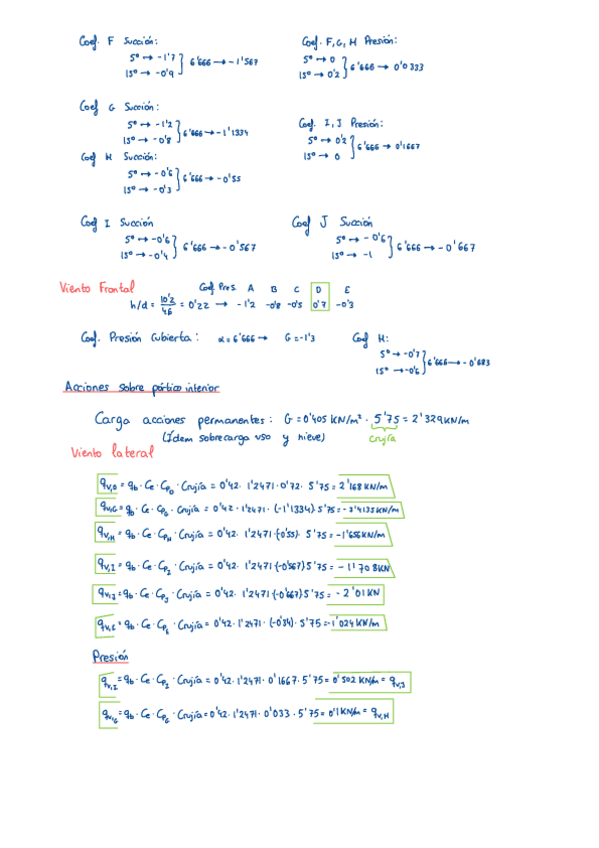 Coef. F Succión:
5º → -1'7
15º → -0'9
6'666 → -1'567
Coef. F, G, H Presión:
5º → 0
15º → 0'2
6'666 → 0'0333
Coef G Succión:
5º → -1'2
15º → -0'8
6'666 → -1'1334
Coef. I, J Presión:
5º → 0'2
15º → 0
6'666 → 0'1667
Coef H Succión:
5º → -0'6
15º → -0'3
6'666 → -0'55
Coef I Succión
5º → -0'6
15º → -0'4
6'666 → -0'567
Coef J Succión
5º → -0'6
15º → -1
6'666 → -0'667
Viento Frontal
Coef Pres A B C D E
h/d = 10'2/46 = 0'22 → -1'2 -0'8 -0'5 0'7 -0'3
Coef. Presión Cubierta: α = 6'666 → G = -1'3
Coef H:
5º → -0'7
15º → -0'6
6'666 → -0'683
Acciones sobre pórtico interior
Carga acciones permanentes: G = 0'405 KN/m² · 5'75 = 2'329 KN/m
(Idem sobrecarga uso y nieve) crujía
Viento lateral
qv,D = qb · Ce · CpD · Crujía = 0'42 · 1'2471 · 0'72 · 5'75 = 2'168 KN/m
qv,G = qb · Ce · CpG · Crujía = 0'42 · 1'2471 · (-1'1334) · 5'75 = -3'4135 KN/m
qv,H = qb · Ce · CpH · Crujía = 0'42 · 1'2471 · (-0'55) · 5'75 = -1'656 KN/m
qv,I = qb · Ce · CpI · Crujía = 0'42 · 1'2471 (-0'567) 5'75 = -1'708 KN
qv,J = qb · Ce · CpJ · Crujía = 0'42 · 1'2471 (-0'667) 5'75 = -2'01 KN
qv,E = qb · Ce · CpE · Crujía = 0'42 · 1'2471 · (-0'34) · 5'75 = -1'024 KN/m
Presión
qv,I = qb · Ce · CpI · Crujía = 0'42 · 1'2471 · 0'1667 · 5'75 = 0'502 KN/m = qv,J
qv,G = qb · Ce · CpG · Crujía = 0'42 · 1'2471 · 0'033 · 5'75 = 0'1 KN/m = qv,H